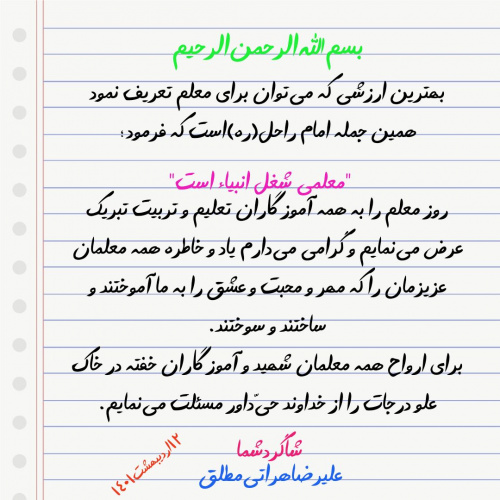 بسم الله الرحمن الرحیم
بهترین ارزشی که می‌توان برای معلم تعریف نمود
همین جمله امام راحل(ره)است که فرمود؛
"معلمی شغل انبیاء است"
روز معلم را به همه آموزگاران تعلیم و تربیت تبریک
عرض می‌نمایم و گرامی می‌دارم یاد و خاطره همه معلمان
عزیزمان را که مهر و محبت و عشق را به ما آموختند و
ساختند و سوختند.
برای ارواح همه معلمان شهید و آموزگاران خفته در خاک
علو درجات را از خداوند حیّ داور مسئلت می‌نمایم.
شاگرد شما
علیرضا هراتی مطلق
۱۲اردیبهشت۱۴۰۱